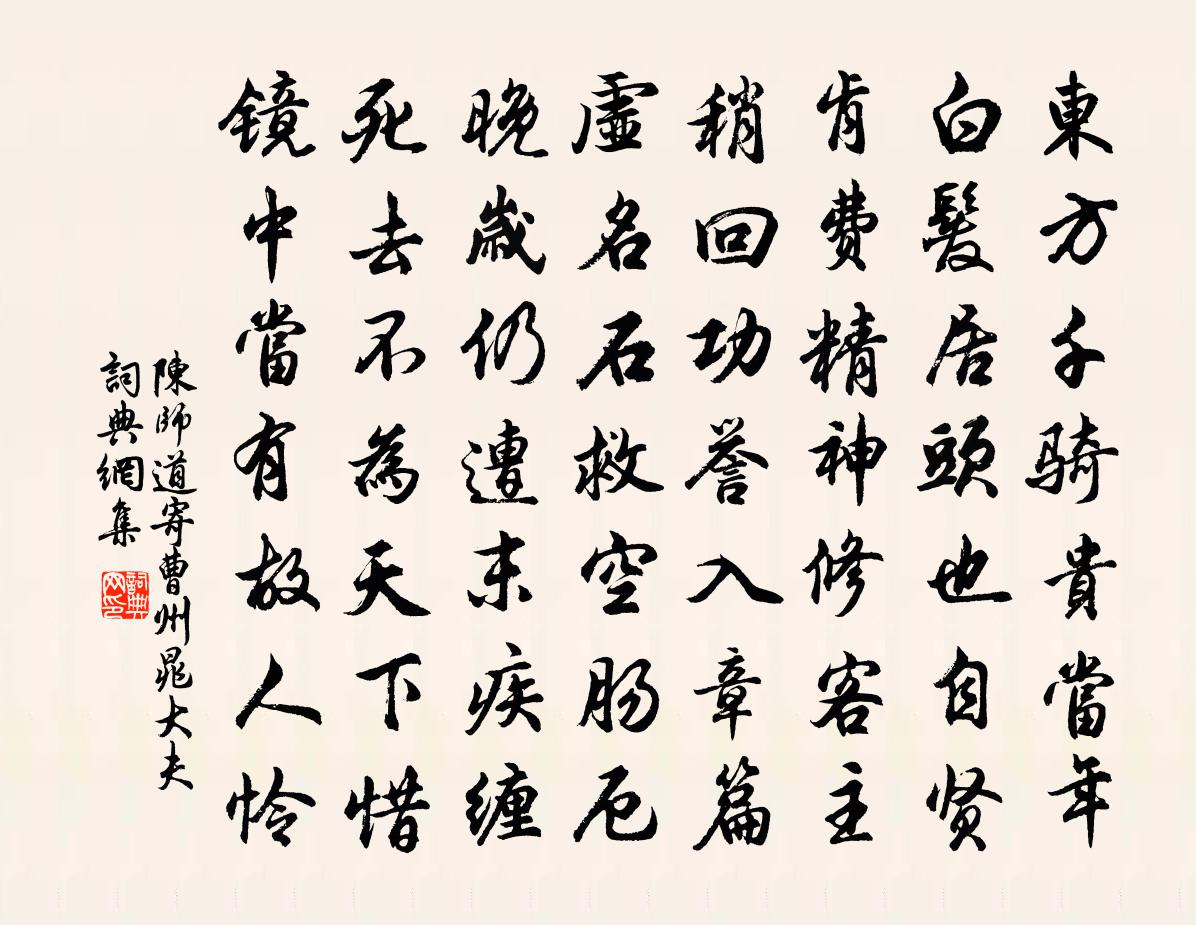 東方千骑貴當年
白髮居頭也自贤
肯费精神修客主
稍回功誉入章篇
虛名石救空肠厄
晚歲仍遭末疾缠
死去不為天下惜
镜中當有故人怜
陳師道寄曹州晁大夫
詞典網集
詞典网印